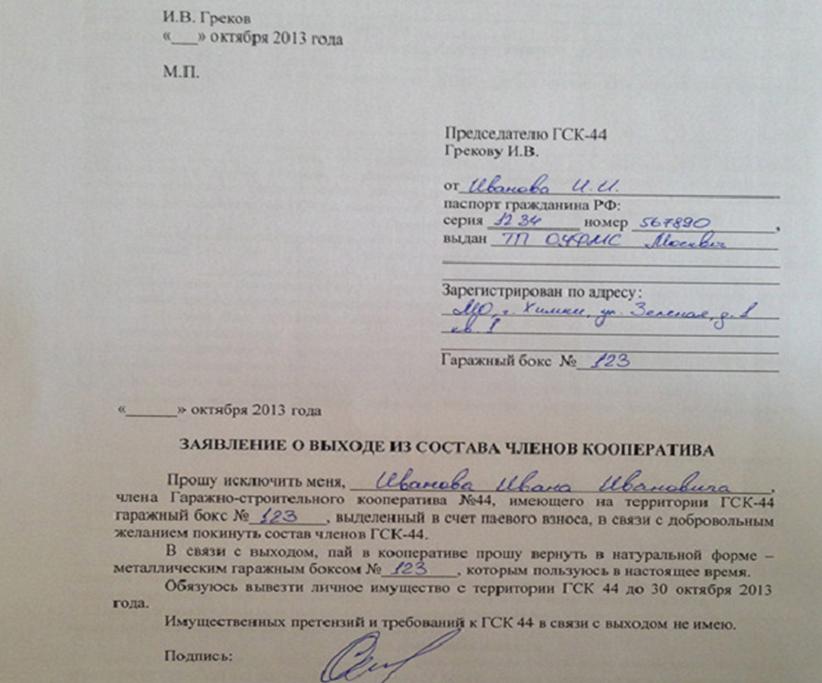 И.В. Греков
«___» октября 2013 года
М.П.
Председателю ГСК-44
Грекову И.В.
от Иванова И.И.
паспорт гражданина РФ:
серия 1234 номер 567890,
выдан ТП ОУФМС Москвы
Зарегистрирован по адресу:
МО, г. Химки, ул. Зеленая, д.1
кв. 1
Гаражный бокс № 123
«______» октября 2013 года
ЗАЯВЛЕНИЕ О ВЫХОДЕ ИЗ СОСТАВА ЧЛЕНОВ КООПЕРАТИВА
Прошу исключить меня, Иванова Ивана Ивановича,
члена Гаражно-строительного кооператива №44, имеющего на территории ГСК-44
гаражный бокс № 123, выделенный в счет паевого взноса, в связи с добровольным
желанием покинуть состав членов ГСК-44.
В связи с выходом, пай в кооперативе прошу вернуть в натуральной форме –
металлическим гаражным боксом № 123, которым пользуюсь в настоящее время.
Обязуюсь вывезти личное имущество с территории ГСК 44 до 30 октября 2013
года.
Имущественных претензий и требований к ГСК 44 в связи с выходом не имею.
Подпись: